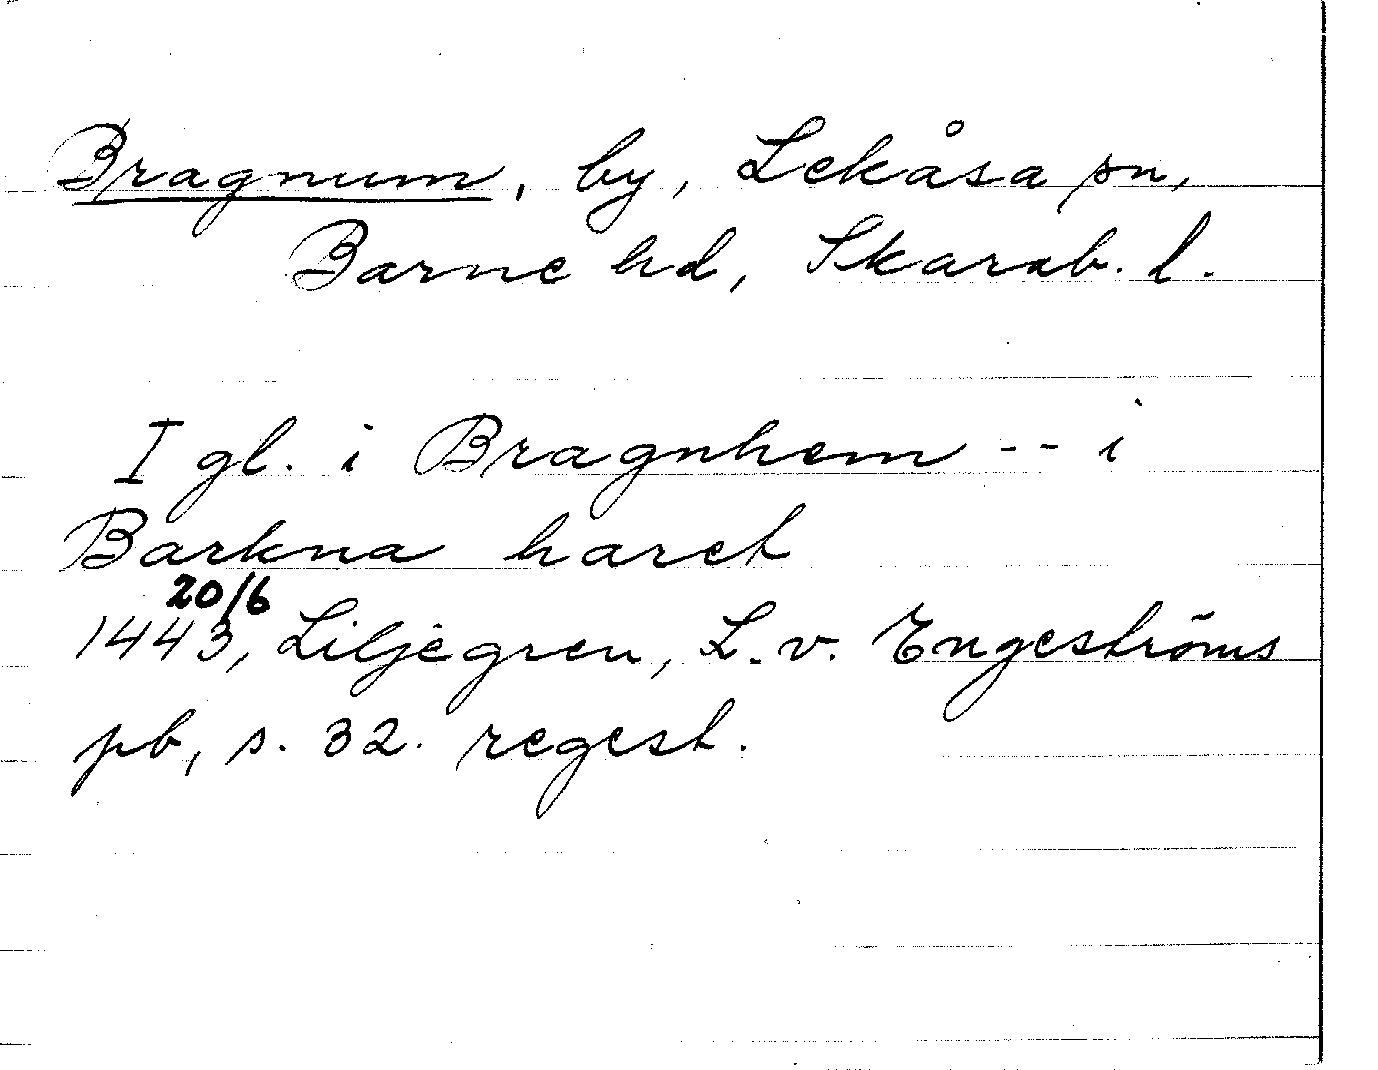 Bragnum, by, Lekåsa sn,
Barne hd, Skarab. l.
I gl. i Bragnhem -- i
Barkna haret
20/6
1443, Liljegren, L. v. Engeströms
pb, s. 32. regest.